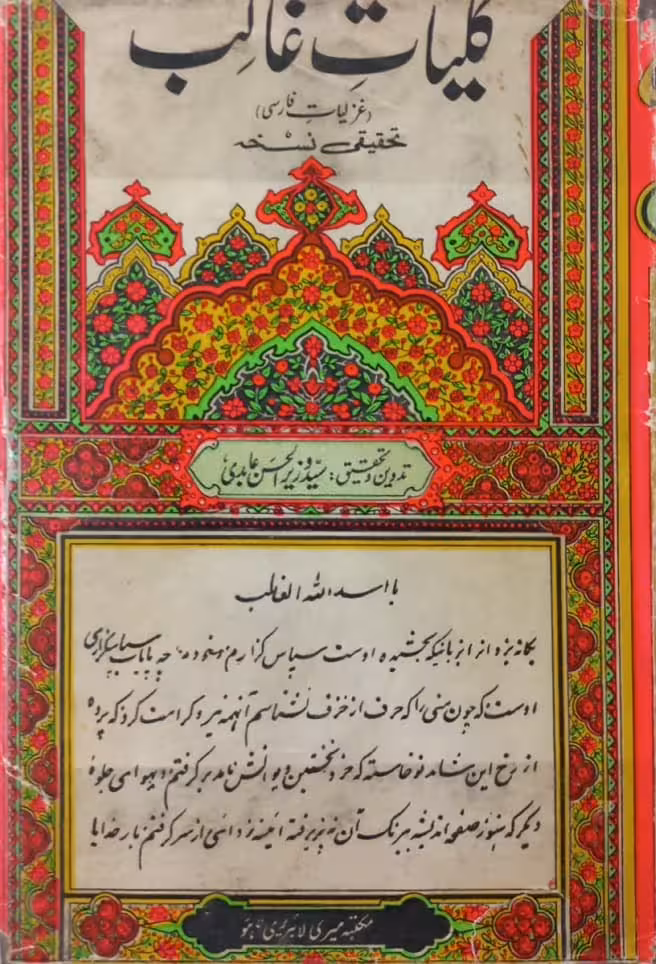 کلیاتِ غالب
(غزلیاتِ فارسی)
تحقیقی نسخہ
تدوین و تحقیق: سیّد وزیر الحسن عابدی
یا اسد اللہ الغالب
یگانہ یزد انرا بزبانیکہ بخشیدہ اوست سپاس گزارم و ستودہ چہ پایاب سپاسگزاری
اوست کہ چون منی را کہ حرف از خزف نشناسم آنہمہ نیرو کرامت کرد کہ پردہ
از رخ این شاہد نوخاستہ کہ خرد نخستین دیوانش نامد برگرفتم و بہوای جلوۂ
دیگر کہ ہنوز صفحہ اندیشہ نیرنگ آن نپذیرفتہ آئینہ زدائی از سر گرفتم بار خدایا
مکتبہ میری لائبریری لاہور